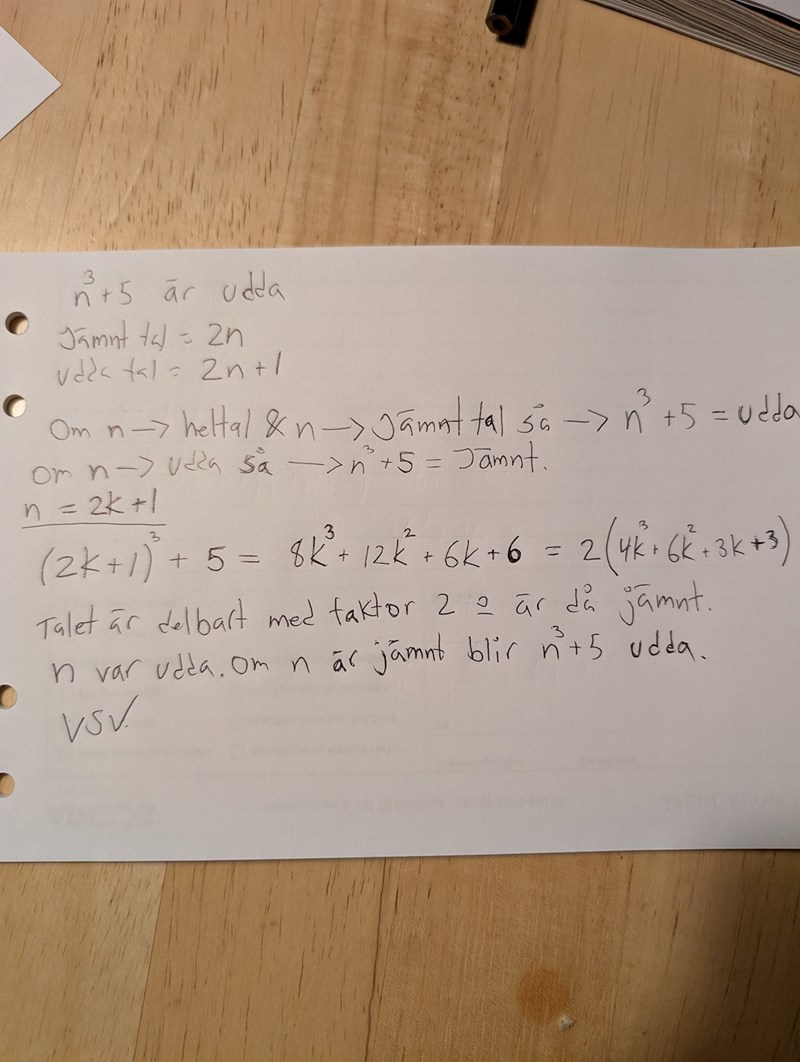 n³+5 är udda
Jämnt tal = 2n
udda tal = 2n+1
Om n → heltal & n → Jämnt tal så → n³ + 5 = udda
om n → udda så → n³ + 5 = Jämnt.
n = 2k+1
(2k+1)³ + 5 = 8k³ + 12k² + 6k + 6 = 2(4k³ + 6k² + 3k + 3)
Talet är delbart med faktor 2 o är då jämnt.
n var udda. Om n är jämnt blir n³+5 udda.
VSV.